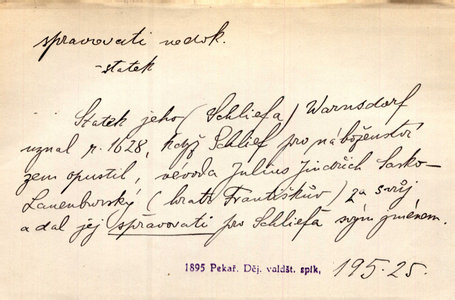 spravovati nedok.
-statek
Statek jeho (Schliefa) Warnsdorf
uznal r. 1628, když Schlief pro náboženství
zem opustil, vévoda Julius Jindřich Sasko-
Lauenburský (bratr Františkův) za svůj
a dal jej spravovati pro Schliefa svým jménem.
1895 Pekař. Děj. valdšt. spik, 195.25.